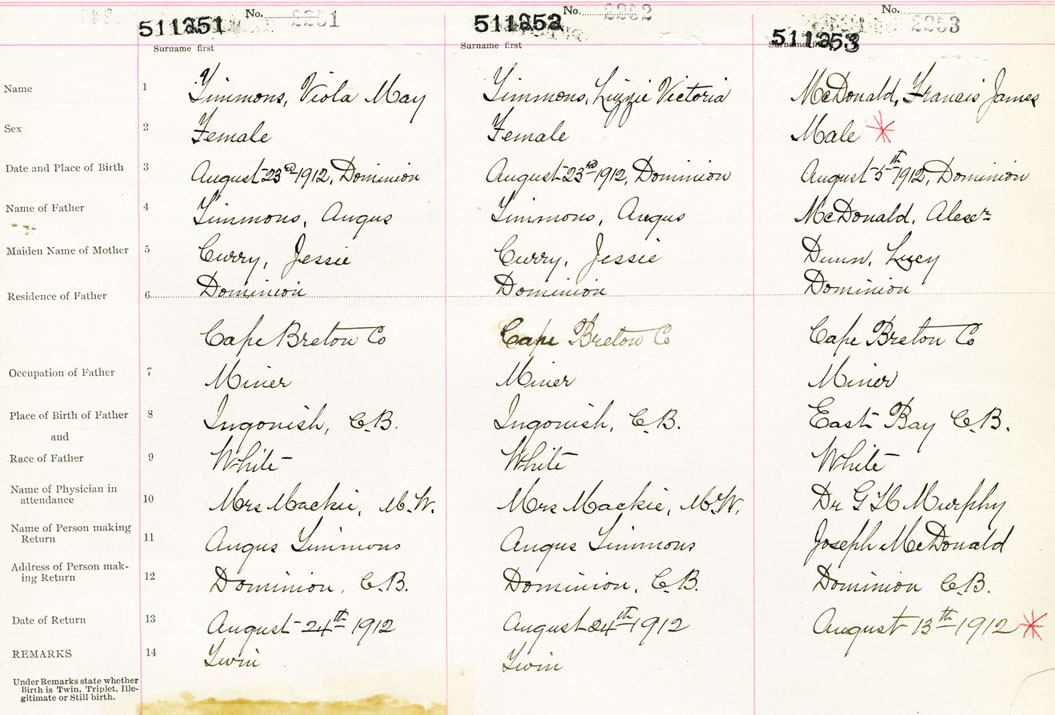 No. 2251 No. 2252 No. 2253
511251 511252 511253
Surname first Surname first Surname first
Name 1 Timmons, Viola May Timmons, Lizzie Victoria McDonald, Francis James
Sex 2 Female Female Male *
Date and Place of Birth 3 August 23rd 1912, Dominion August 23rd 1912, Dominion August 5th 1912, Dominion
Name of Father 4 Timmons, Angus Timmons, Angus McDonald, Alexr
Maiden Name of Mother 5 Curry, Jessie Curry, Jessie Dunn, Lucy
Residence of Father 6 Dominion Dominion Dominion
Cape Breton Co Cape Breton Co Cape Breton Co
Occupation of Father 7 Miner Miner Miner
Place of Birth of Father 8 Ingonish, C.B. Ingonish, C.B. East Bay C.B.
and
Race of Father 9 White White White
Name of Physician in
attendance 10 Mrs Mackie, M.W. Mrs Mackie, M.W. Dr G H Murphy
Name of Person making
Return 11 Angus Timmons Angus Timmons Joseph McDonald
Address of Person mak-
ing Return 12 Dominion, C.B. Dominion, C.B. Dominion C.B.
Date of Return 13 August 24th 1912 August 24th 1912 August 13th 1912 *
REMARKS 14 Twin Twin
Under Remarks state whether
Birth is Twin, Triplet, Ille-
gitimate or Still birth.